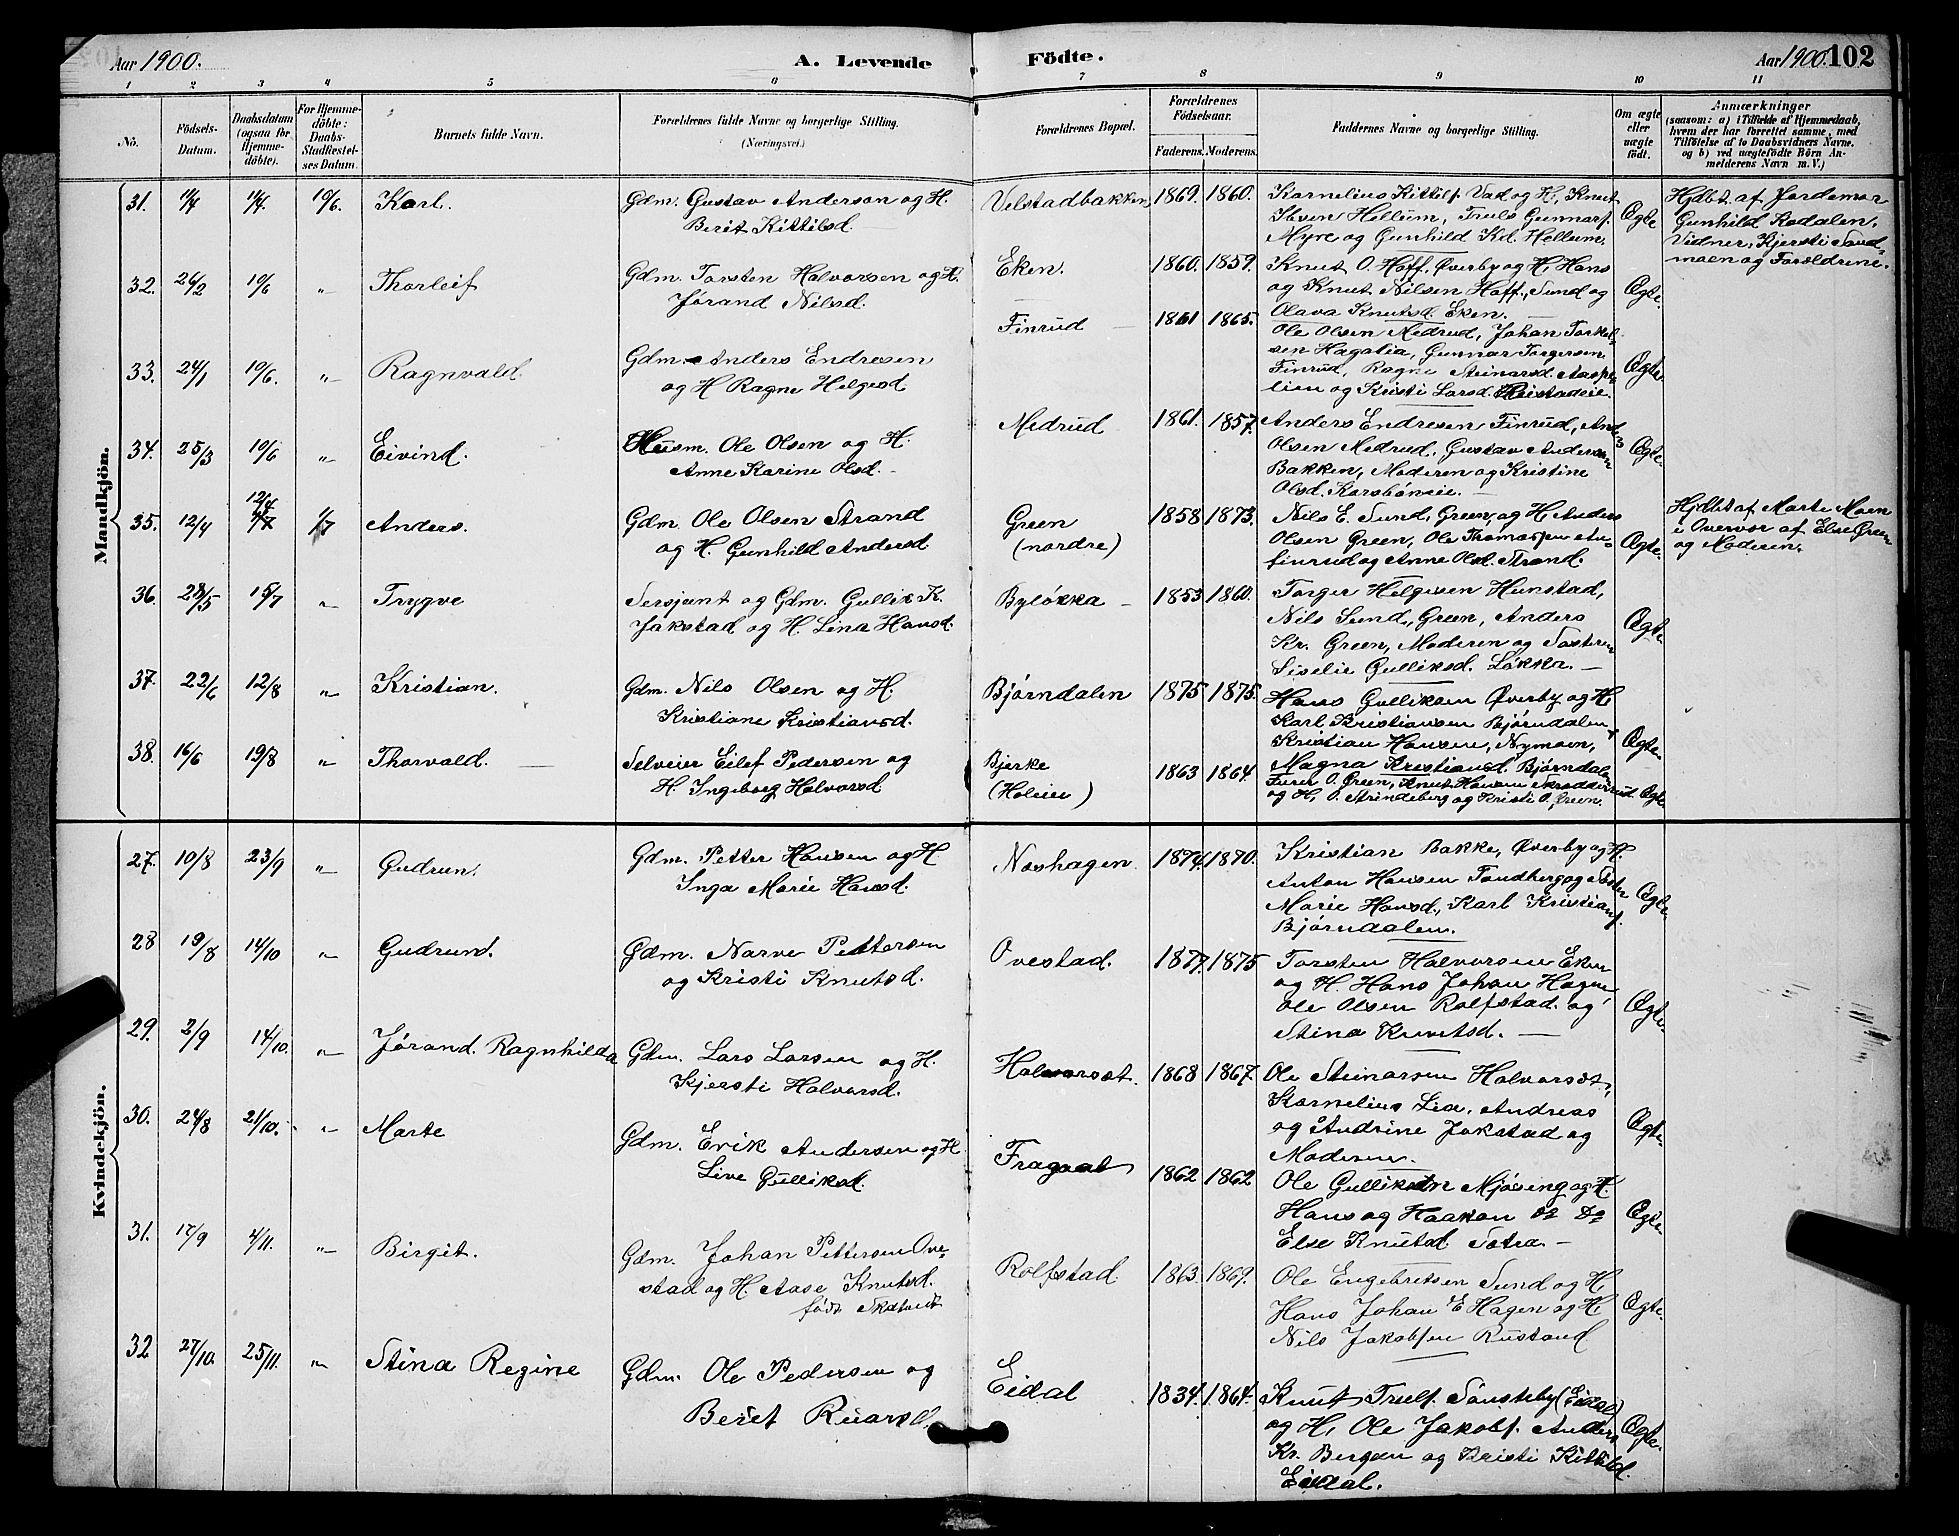 Aar 1900.
A. Levende Födte.
Aar 1900. 102
1 2 3 4 5 6 7 8 9 10 11
No.
Födsels-Datum.
Daabsdatum (ogsaa for Hjemmedöbte).
For Hjemmedöbte: Daabs-Stadfæstelses Datum.
Barnets fulde Navn.
Forældrenes fulde Navne og borgerlige Stilling. (Næringsvei.)
Forældrenes Bopæl.
Forældrenes Födselsaar.
Faderens. Moderens.
Faddernes Navne og borgerlige Stilling.
Om ægte eller uægte födt.
Anmærkninger
(saasom: a) i Tilfælde af Hjemmedaab, hvem der har forrettet samme, med Tilföielse af to Daabsvidners Navne, og b) ved uægtefödte Börn Anmelderens Navn m. V.)
Mandkjön.
31. 1/4 1/4. 10/6. Karl.
Gdm. Gustav Anderson og H.
Berit Kittilsd.
Velstadbakken 1869. 1860.
Kornelius Kittilf. Vad og H, Knut
Ibsen Hellum, Truls Gunnarf.
Myre og Gunhild Kd. Hellum.
Ægte
Hjdbt. af Jordemor
Gunhild Rodalen.
Vidner, Kjersti Sand
moen og Forældrene.
32. 26/2 10/6 „ Thorleif
Gdm. Torsten Halvorsen og H.
Jørand Nilsd.
Eken. 1860. 1859.
Knut O. Hoff, Øverby og H, Hans
og Knut Nilsen Hoff, Sund og
Olava Knutsd. Eken.
Ægte.
33. 24/1 10/6. „ Ragnvald.
Gdm. Anders Endresen
og H Ragne Helgesd
Finrud 1861 1865.
Ole Olsen Medrud, Johan Torkel-
sen Hagalia, Gunnar Torgersen
Finrud, Ragne Steinarsd. Aaspe-
lien og Kristi Larsd.
Ægte.
34. 25/3 10/6 „ Eivind.
Husm. Ole Olsen og H.
Anne Karine Olsd.
Medrud 1861. 1857.
Anders Endresen Finrud, Anders
Olsen Medrud, Gustav Andersen
Bakken, Moderen og Kristine
Olsd.
Ægte.
35. 12/4 12/4 1/7 Anders.
Gdm. Ole Olsen Strand
og H. Gunhild Andersd
Green
(nordre)
1858 1873.
Nils E. Sund, Green, og H, Anders
Olsen Green, Ole Thomassen An-
finrud og Anne Olsd. Strand.
Ægte.
Hjdbt. af Marte Moen
i Overvær af Else Green
og Moderen.
36. 28/5 15/7 „ Trygve
Sersjant og Gdm. Gullik K.
Jakstad og H. Lina Hansd.
Byløkka 1853 1860.
Torger Helgesen Hunstad,
Nils Sund, Green, Anders
Kr. Green, Moderen og Søsteren
Siselie Gulliksd. Løkka.
Ægte
37. 22/6 12/8 „ Kristian.
Gdm. Nils Olsen og H.
Kristiane Kristiansd.
Bjørndalen 1875. 1875.
Hans Gulliksen Øverby og H,
Karl Kristiansen Bjørndalen,
Kristian Hansen, Nymoen,
Magna Kristiansd. Bjørndalen
Ægte
38. 16/6 19/8 „ Thorvald.
Selveier Eilef Pedersen og
H. Ingeborg Halvorsd
Bjerke
(Holeie)
1863 1864
O. Green, Knut Hansen Skredderrud
og H, O. Strindeberg og Kristi O. Green.
Ægte
Kvindekjön.
27. 10/8 23/9 „ Gudrun.
Gdm. Petter Hansen og H.
Inga Marie Hansd.
Noshagen 1874. 1870.
Kristian Bakke, Øverby og H.
Anton Hansen Tandberg og Søster
Marie Hansd., Karl Kristiansf.
Bjørndalen.
Ægte
28 19/8 14/10 „ Gudrun.
Gdm. Narve Pettersen
og Kristi Knutsd.
Ovestad. 1877. 1875
Torsten Halvorsen Eken
og H. Hans Johan Hagen,
Ole Olsen Rolfstad. og
Stina Knutsd.
Ægte.
29. 2/9 14/10. „ Jørand Ragnhilda
Gdm. Lars Larsen og H.
Kjersti Halvorsd.
Halvorset. 1868 1867.
Ole Steinarsen Halvorset,
Kornelius Lia, Andreas
og Andrine Jakstad og
Moderen.
Ægte.
30. 24/8 21/10. „ Marte
Gdm. Erik Andersen og H
Live Gulliksd.
Fragaat 1862 1862
Ole Gulliksen Mjøsing og H.
Hans og Haakon do Do
Else Knutsd Sotra
Ægte
31. 17/9 4/11. „ Birgit.
Gdm. Johan Pettersen Ove-
stad og H. Aase Knutsd.
født Skatvedt
Rolfstad 1863. 1869.
Ole Engebretsen Sund og H,
Hans Johan E Hagen og H,
Nils Jakobsen Rustand
Ægte.
32 27/10. 25/11. „ Stina Regine
Gdm. Ole Pedersen og
Beret Ruarsd.
Eidal 1834. 1864.
Knut Trulf. Sønsteby (Eidal)
og H, Ole Jakobf. Anders
Kr. Bergan og Kristi Kittilsd.
Eidal.
Ægte.